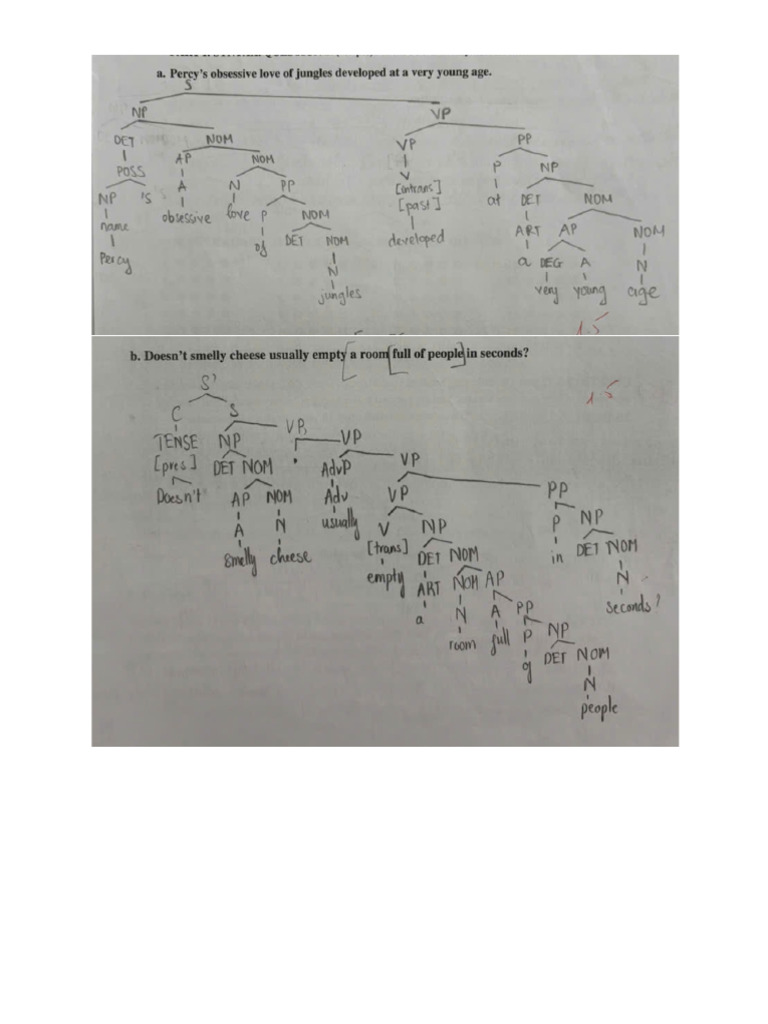 a. Percy's obsessive love of jungles developed at a very young age.
S
NP VP
DET NOM VP PP
POSS AP NOM V P NP
NP 's A N PP [intrans] at DET NOM
name obsessive love P NOM [past] ART AP NOM
Percy of DET NOM developed a DEG A N
N very young age
jungles
1.5
b. Doesn't smelly cheese usually empty a room full of people in seconds?
1.5
S'
C S
TENSE NP VP VP
[pres] DET NOM AdvP VP
Doesn't AP NOM Adv VP PP
A N usually V NP P NP
smelly cheese [trans] DET NOM in DET NOM
empty ART NOM AP N
a N A PP seconds?
room full P NP
of DET NOM
N
people